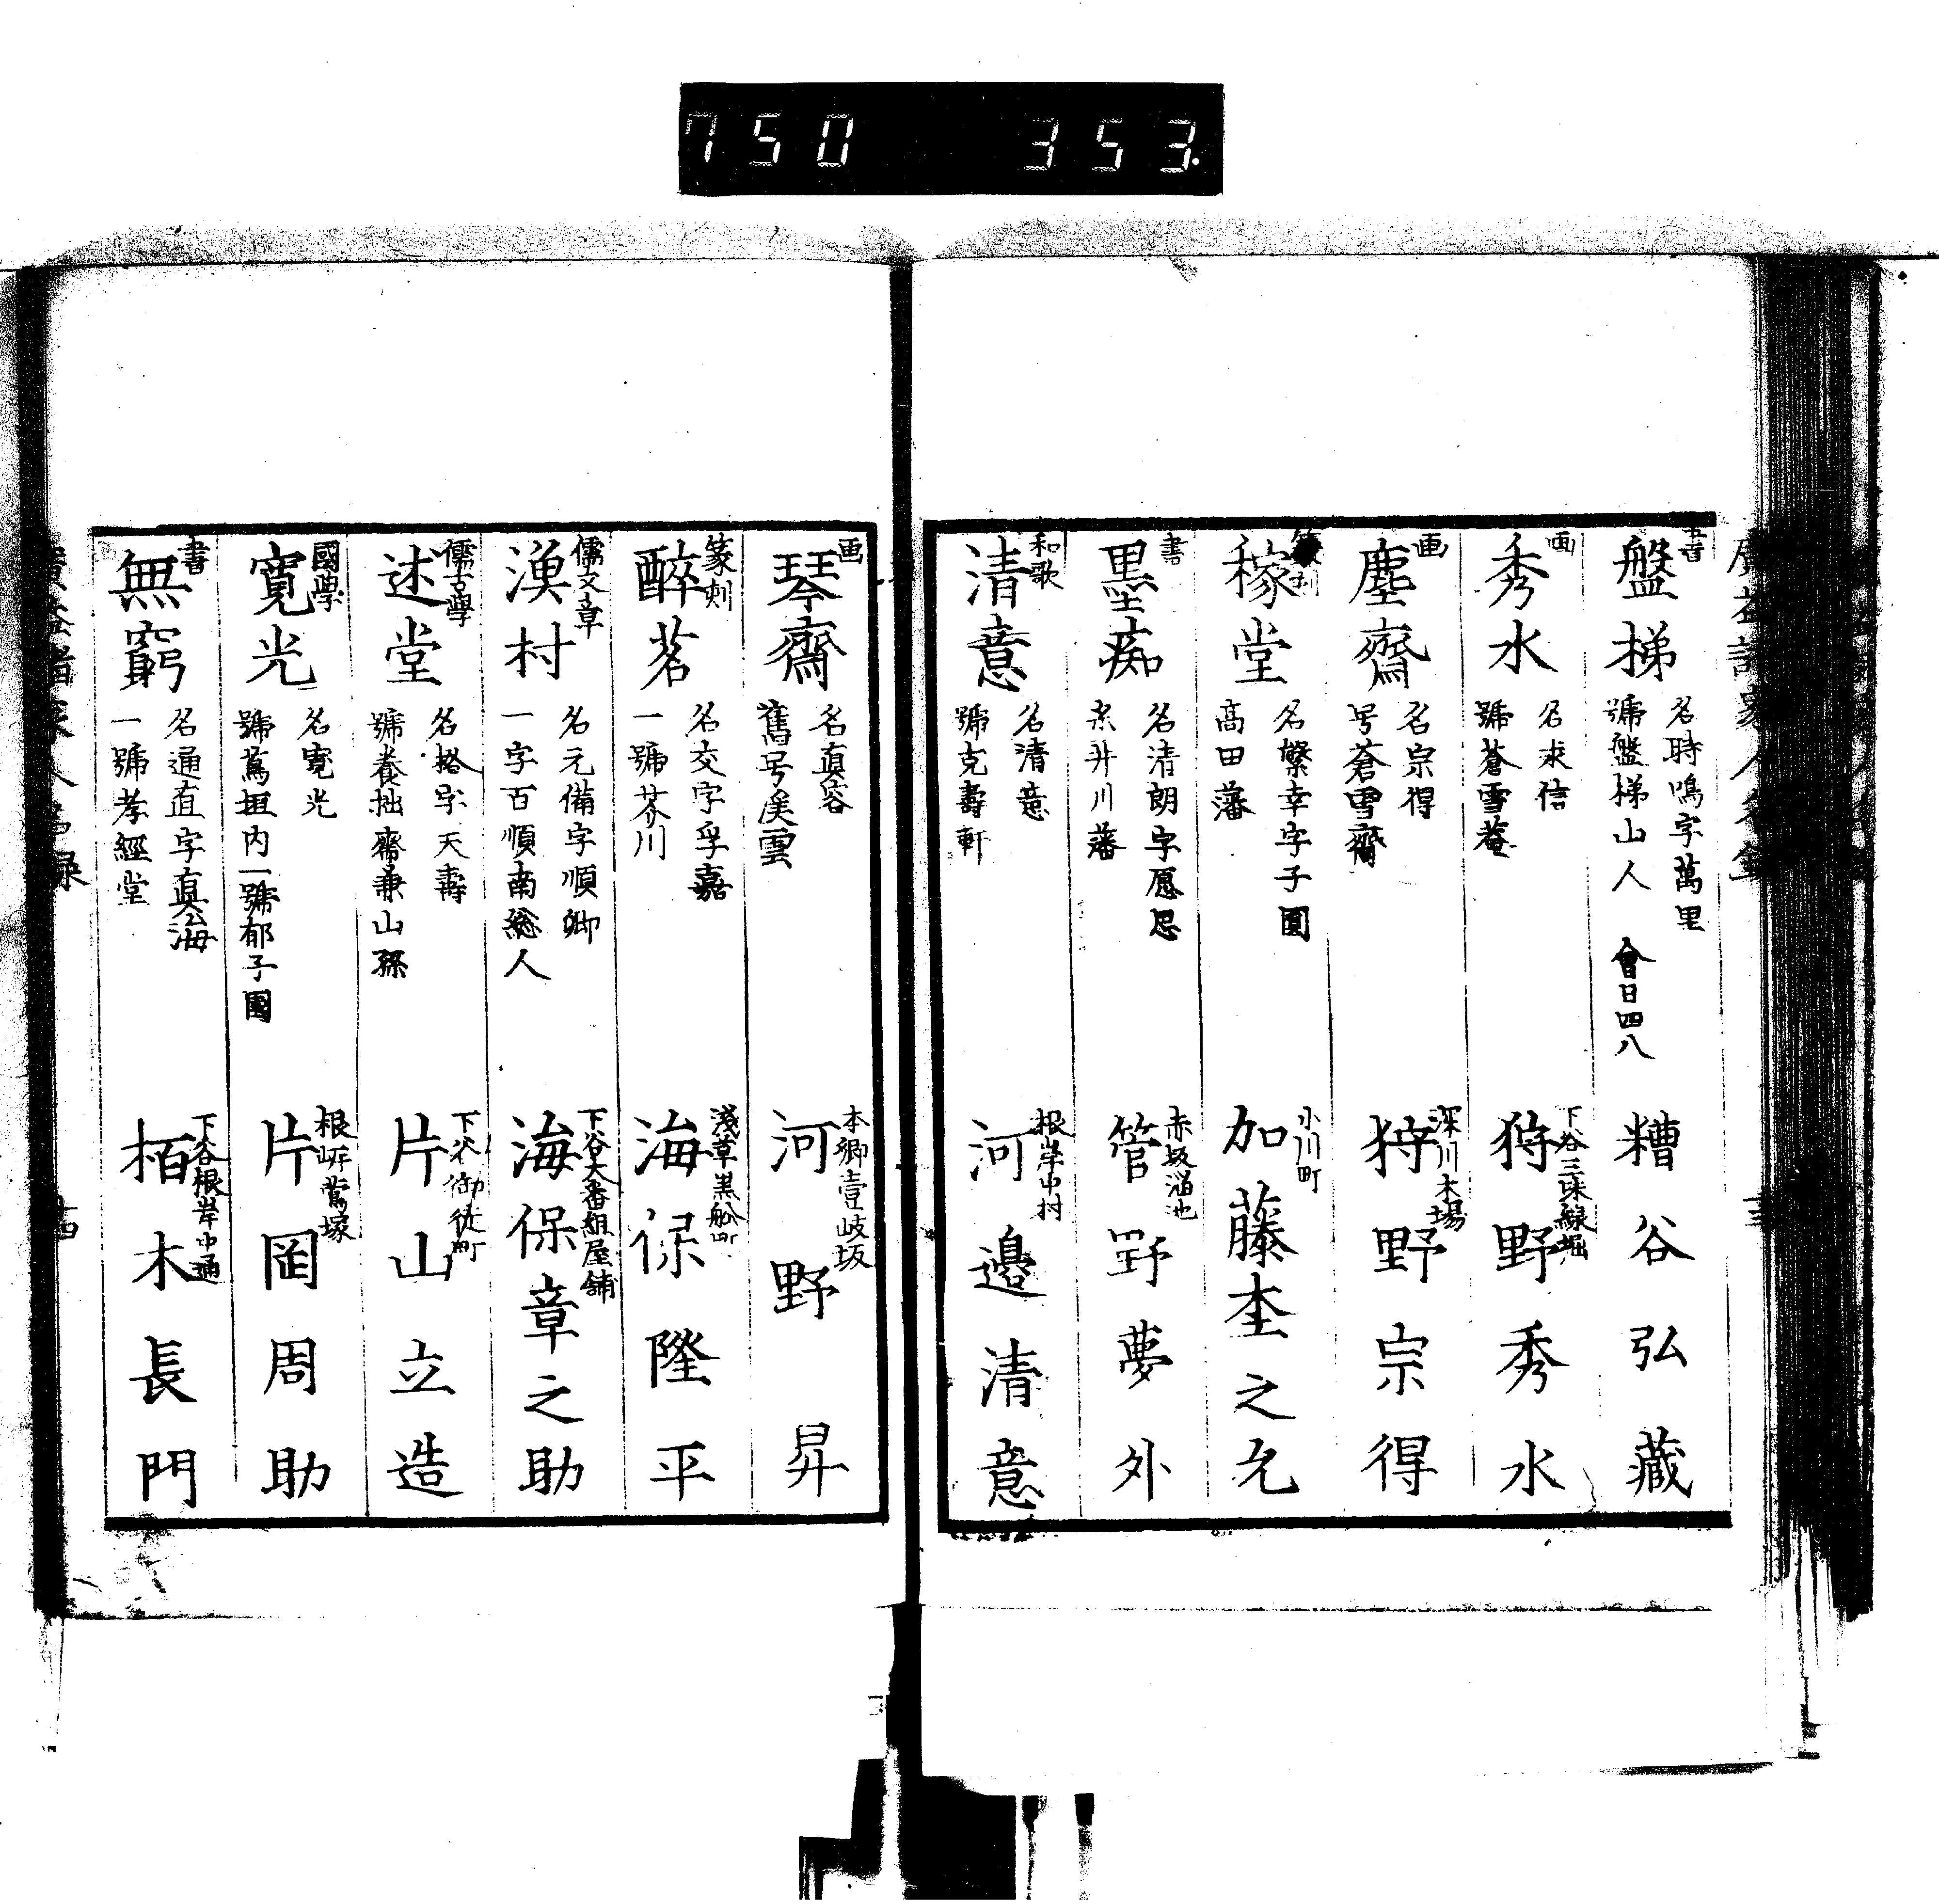 750 353
書
盤梯
名時鳴字萬里
號盤梯山人 會日四八
糟谷弘藏
画
秀水
名求信
號蒼雪菴
下谷三味線堀
狩野秀水
画
塵齋
名宗得
号蒼雪齋
深川木場
狩野宗得
稼堂
名繁幸字子圓
高田藩
小川町
加藤奎之允
書
墨痴
名清朗字愿
糸井川藩
赤坂溜池
管野夢外
和歌
清意
名清意
號克壽軒
根岸中村
河邉清意
画
琴齋
名真容
舊号渓雲
本郷壹岐坂
河野昇
篆刻
醉茗
名交字孚嘉
一號芥川
淺草黒舩町
海保隆平
儒文章
漁村
名元備字順卿
一字百順南総人
下谷大番組屋舗
海保章之助
儒古學
述堂
名格字天壽
號養拙齋兼山孫
下谷御徒町
片山立造
國學
寛光
名寛光
號蔦垣内一號郁子園
根岸鶯塚
片岡周助
書
無窮
名通直字真海
一號孝經堂
下谷根岸中通
栢木長門